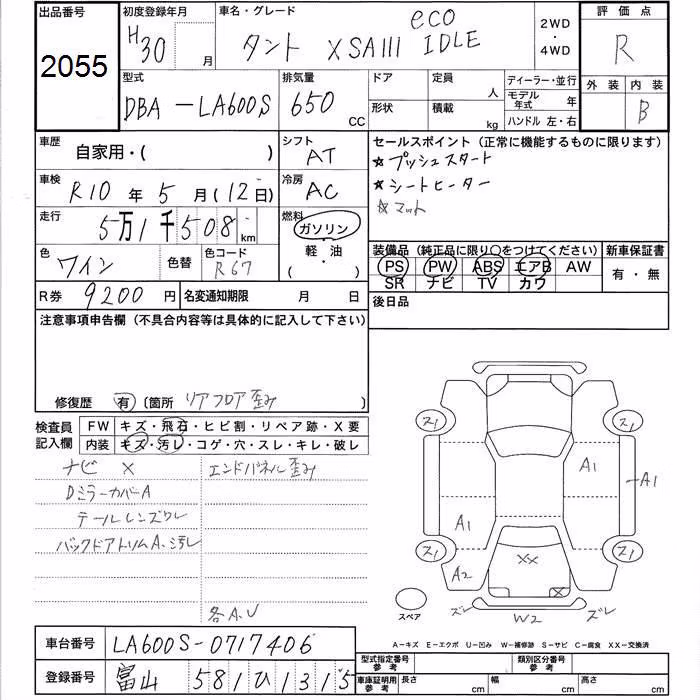 出品番号 初度登録年月 車名・グレード 2WD ・ 4WD 評価点
2055 H30 月 タント X SAIII eco IDLE R
型式 排気量 ドア 定員 人 ディーラー・並行 外装 内装
DBA-LA600S 650 cc 形状 積載 kg モデル年式 年 B
ハンドル 左・右
車歴 自家用・( ) シフト AT セールスポイント(正常に機能するものに限ります)
★プッシュスタート
車検 R10 年 5 月 (12日) 冷房 AC ★シートヒーター
☆マット
走行 5万1千508 km 燃料 ガソリン 軽・油 ( ・ )
色 ワイン 色替 色コード R67
装備品(純正品に限り○をつけてください) 新車保証書
PS PW ABS エアB AW 有・無
SR ナビ TV カワ
R券 9200 円 名変通知期限 月 日 後日品
注意事項申告欄(不具合内容等は具体的に記入して下さい)
修復歴 有 〔箇所 リアフロア歪み
検査員記入欄 FW キズ・飛石・ヒビ割・リペア跡・X要
内装 キズ・汚レ・コゲ・穴・スレ・キレ・破レ
ナビ X エンドパネル歪み
Dミラーカバー A
テールレンズワレ
バックドアトリムA.汚レ
各A.U
ス1 ス1
A1 A1
A1
ス1 ス1
A2 XX X
スペア ズレ W2 ズレ
A-キズ E-エクボ U-凹み W-補修跡 S-サビ C-腐食 XX-交換済
車台番号 LA600S-0717406
型式指定番号 参考 類別区分番号 参考
登録番号 富山 581 ひ 1315
車庫証明用 参考 長さ cm 幅 cm 高さ cm